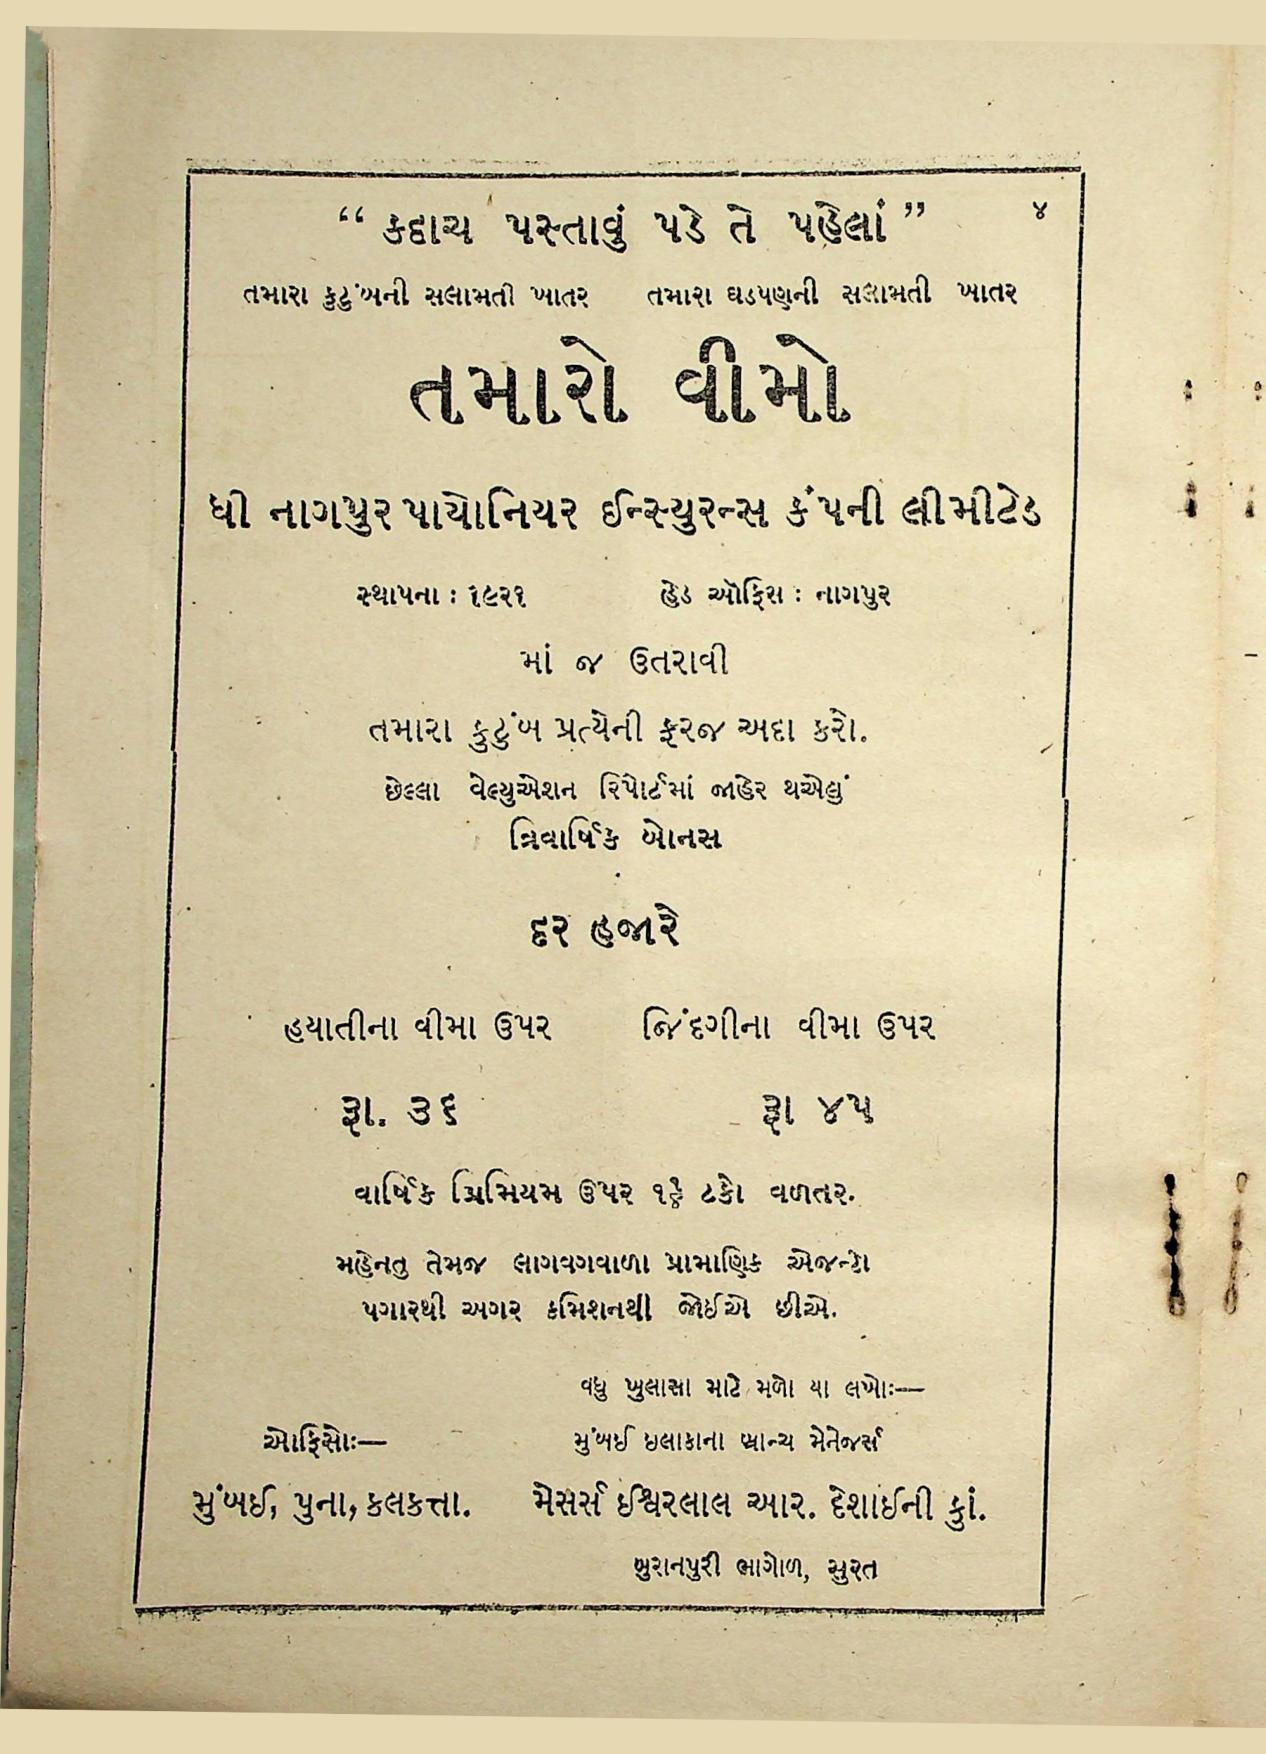 ૪
“ કદાચ પસ્તાવું પડે તે પહેલાં ”
તમારા કુટુંબની સલામતી ખાતર તમારા ઘડપણની સલામતી ખાતર
તમારો વીમો
ધી નાગપુર પાયોનિયર ઈન્સ્યુરન્સ કંપની લીમીટેડ
સ્થાપના : ૧૯૨૧ હેડ ઑફિસ : નાગપુર
માં જ ઉતરાવી
તમારા કુટુંબ પ્રત્યેની ફરજ અદા કરો.
છેલ્લા વેલ્યુએશન રિપોર્ટમાં જાહેર થએલું
ત્રિવાર્ષિક બોનસ
દર હજારે
હયાતીના વીમા ઉપર જિંદગીના વીમા ઉપર
રૂા. ૩૬ રૂા ૪૫
વાર્ષિક પ્રિમિયમ ઉપર ટકો વળતર.
મહેનતુ તેમજ લાગવગવાળા પ્રામાણિક એજન્ટો
પગારથી અગર કમિશનથી જોઈએ છીએ.
વધુ ખુલાસા માટે મળો યા લખોઃ—
ઓફિસોઃ— મુંબઈ ઇલાકાના બ્રાન્ચ મેનેજર્સ
મુંબઈ, પુના, કલકત્તા. મેસર્સ ઈશ્વરલાલ આર. દેશાઈની કું.
બુરાનપુરી ભાગોળ, સુરત